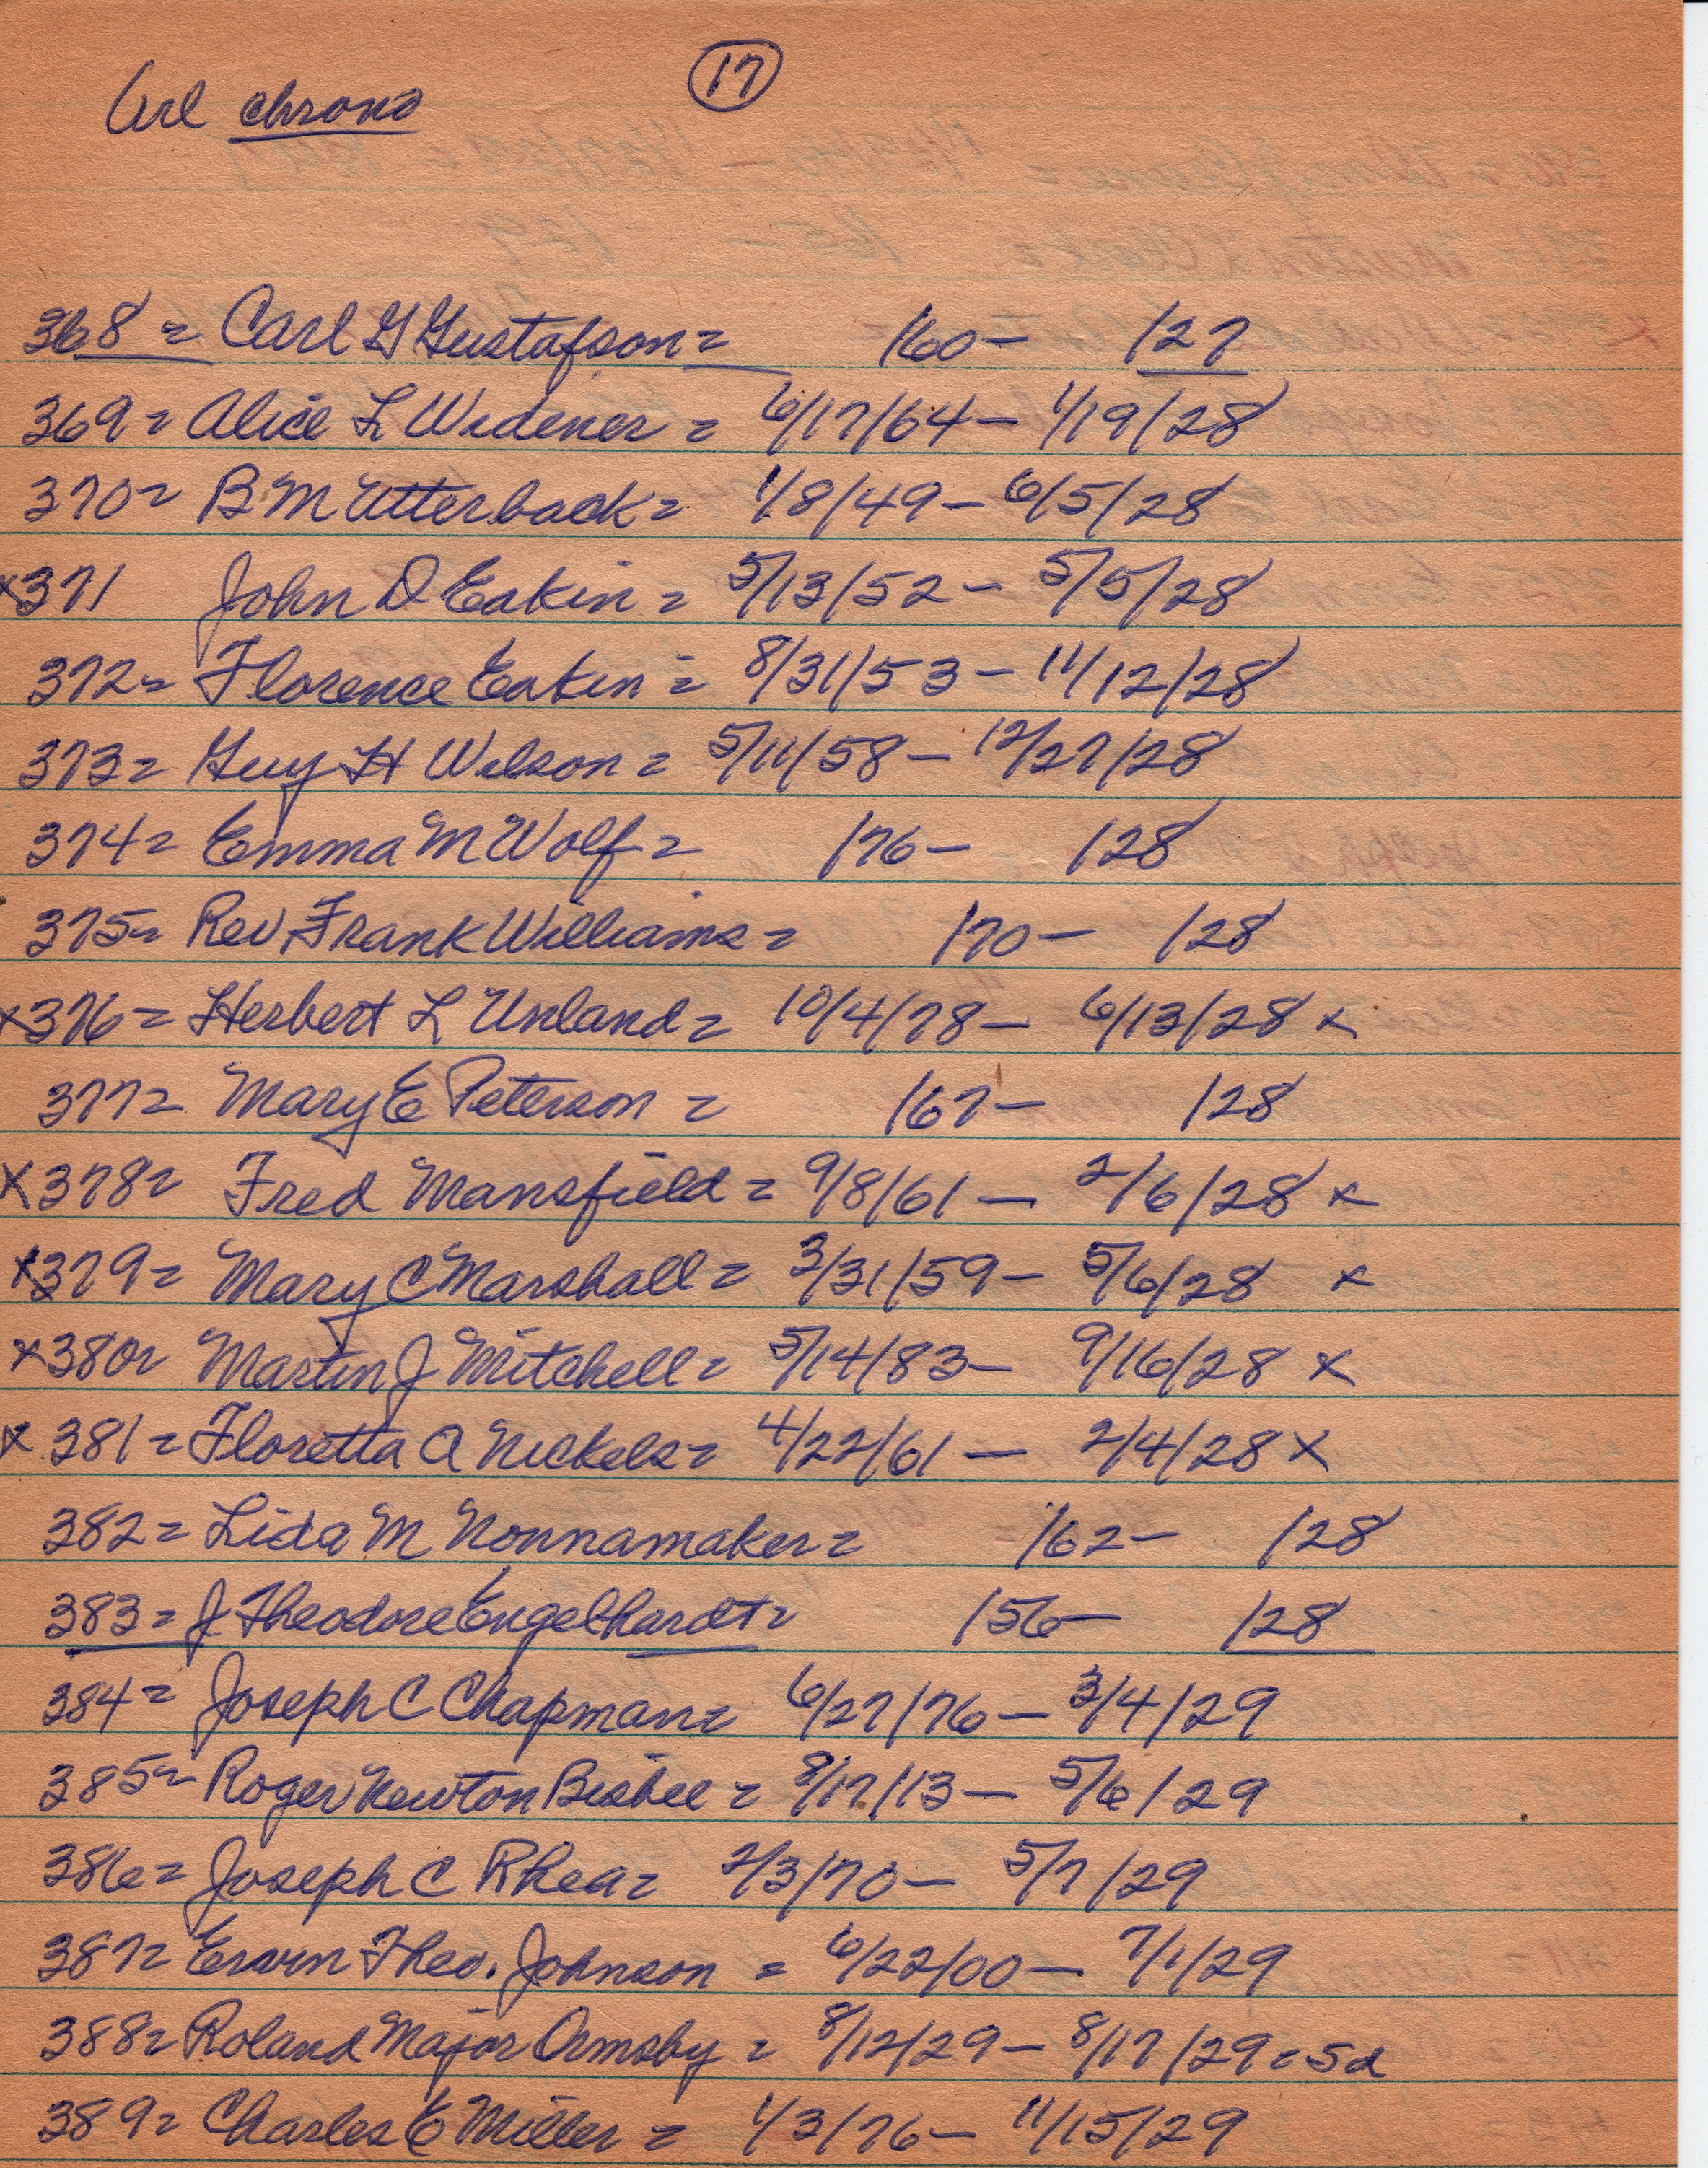 17
Arl chrono
368 = Carl G Gustafson = /60 - /27
369 = Alice L Widener = 6/17/64 - 1/19/28
370 = B M Utterback = 1/8/49 - 6/5/28
x371 John D Eakin = 5/13/52 - 5/5/28
372 = Florence Eakin = 8/31/53 - 11/12/28
373 = Guy H Wilson = 5/11/58 - 12/27/28
374 = Emma M Wolf = /76 - /28
375 = Rev. Frank Williams = /70 - /28
x376 = Herbert L Unland = 10/4/78 - 6/13/28 x
377 = Mary E Peterson = /67 - /28
x378 = Fred Mansfield = 9/8/61 - 2/6/28 x
x379 = Mary C Marshall = 3/31/59 - 5/6/28 x
x380 = Martin J Mitchell = 5/14/83 - 9/16/28 x
x381 = Floretta A Nickels = 4/22/61 - 2/4/28 x
382 = Lida M Nonnamaker = /62 - /28
383 = J Theodore Engelhardt = /56 - /28
384 = Joseph C Chapman = 6/27/76 - 3/4/29
385 = Roger Newton Bisbee = 8/17/13 - 5/6/29
386 = Joseph C Rhea = 2/3/70 - 5/7/29
387 = Ervin Theo. Johnson = 6/22/00 - 7/1/29
388 = Roland Major Ormsby = 8/12/29 - 8/17/29 = 5d
389 = Charles E Miller = 1/3/76 - 11/15/29